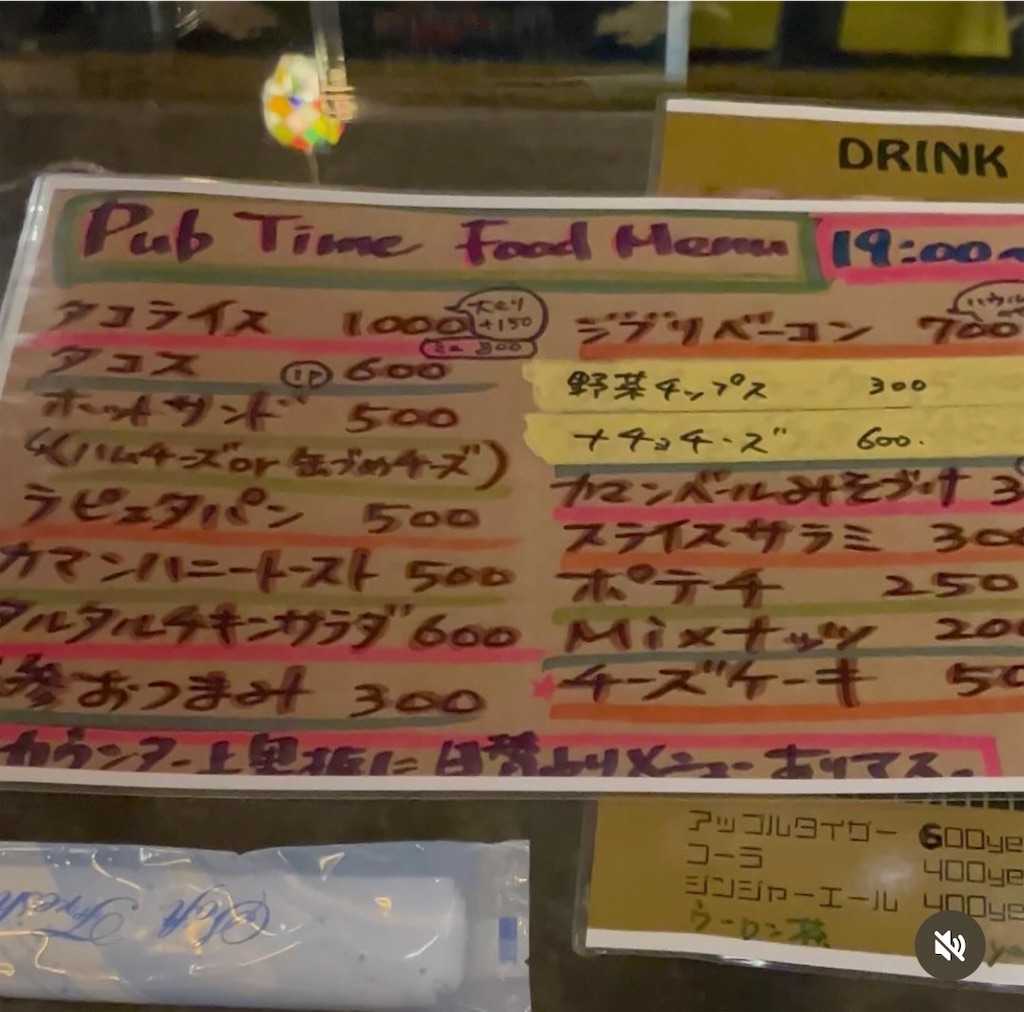 DRINK
Pub Time Food Menu 19:00~
タコライス 1000 大もり +150
ミニ 800
タコス 1P 600
ホットサンド 500
(ハムチーズor缶づめチーズ)
ラピュタパン 500
カマンハニートースト 500
タルタルチキンサラダ 600
おつまみ 300
ジブリベーコン 700
野菜チップス 300
ナチョチーズ 600.
カマンベールみそづけ 3
スライスサラミ 300
ポテチ 250
Mixナッツ 200
チーズケーキ 50
カウンター上黒板に日替わりメニューありマス。
アップルタイガー 600ye
コーラ 400ye
ジンジャーエール 400ye
ウーロン茶
Soft Fresh